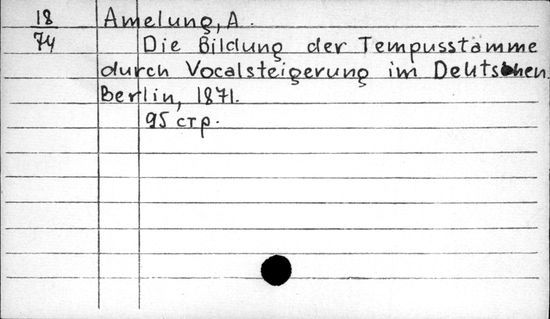 18 Amelung, A.
74 Die Bildung der Tempusstämme
durch Vocalsteigerung im Deutschen.
Berlin, 1871.
95 стр.